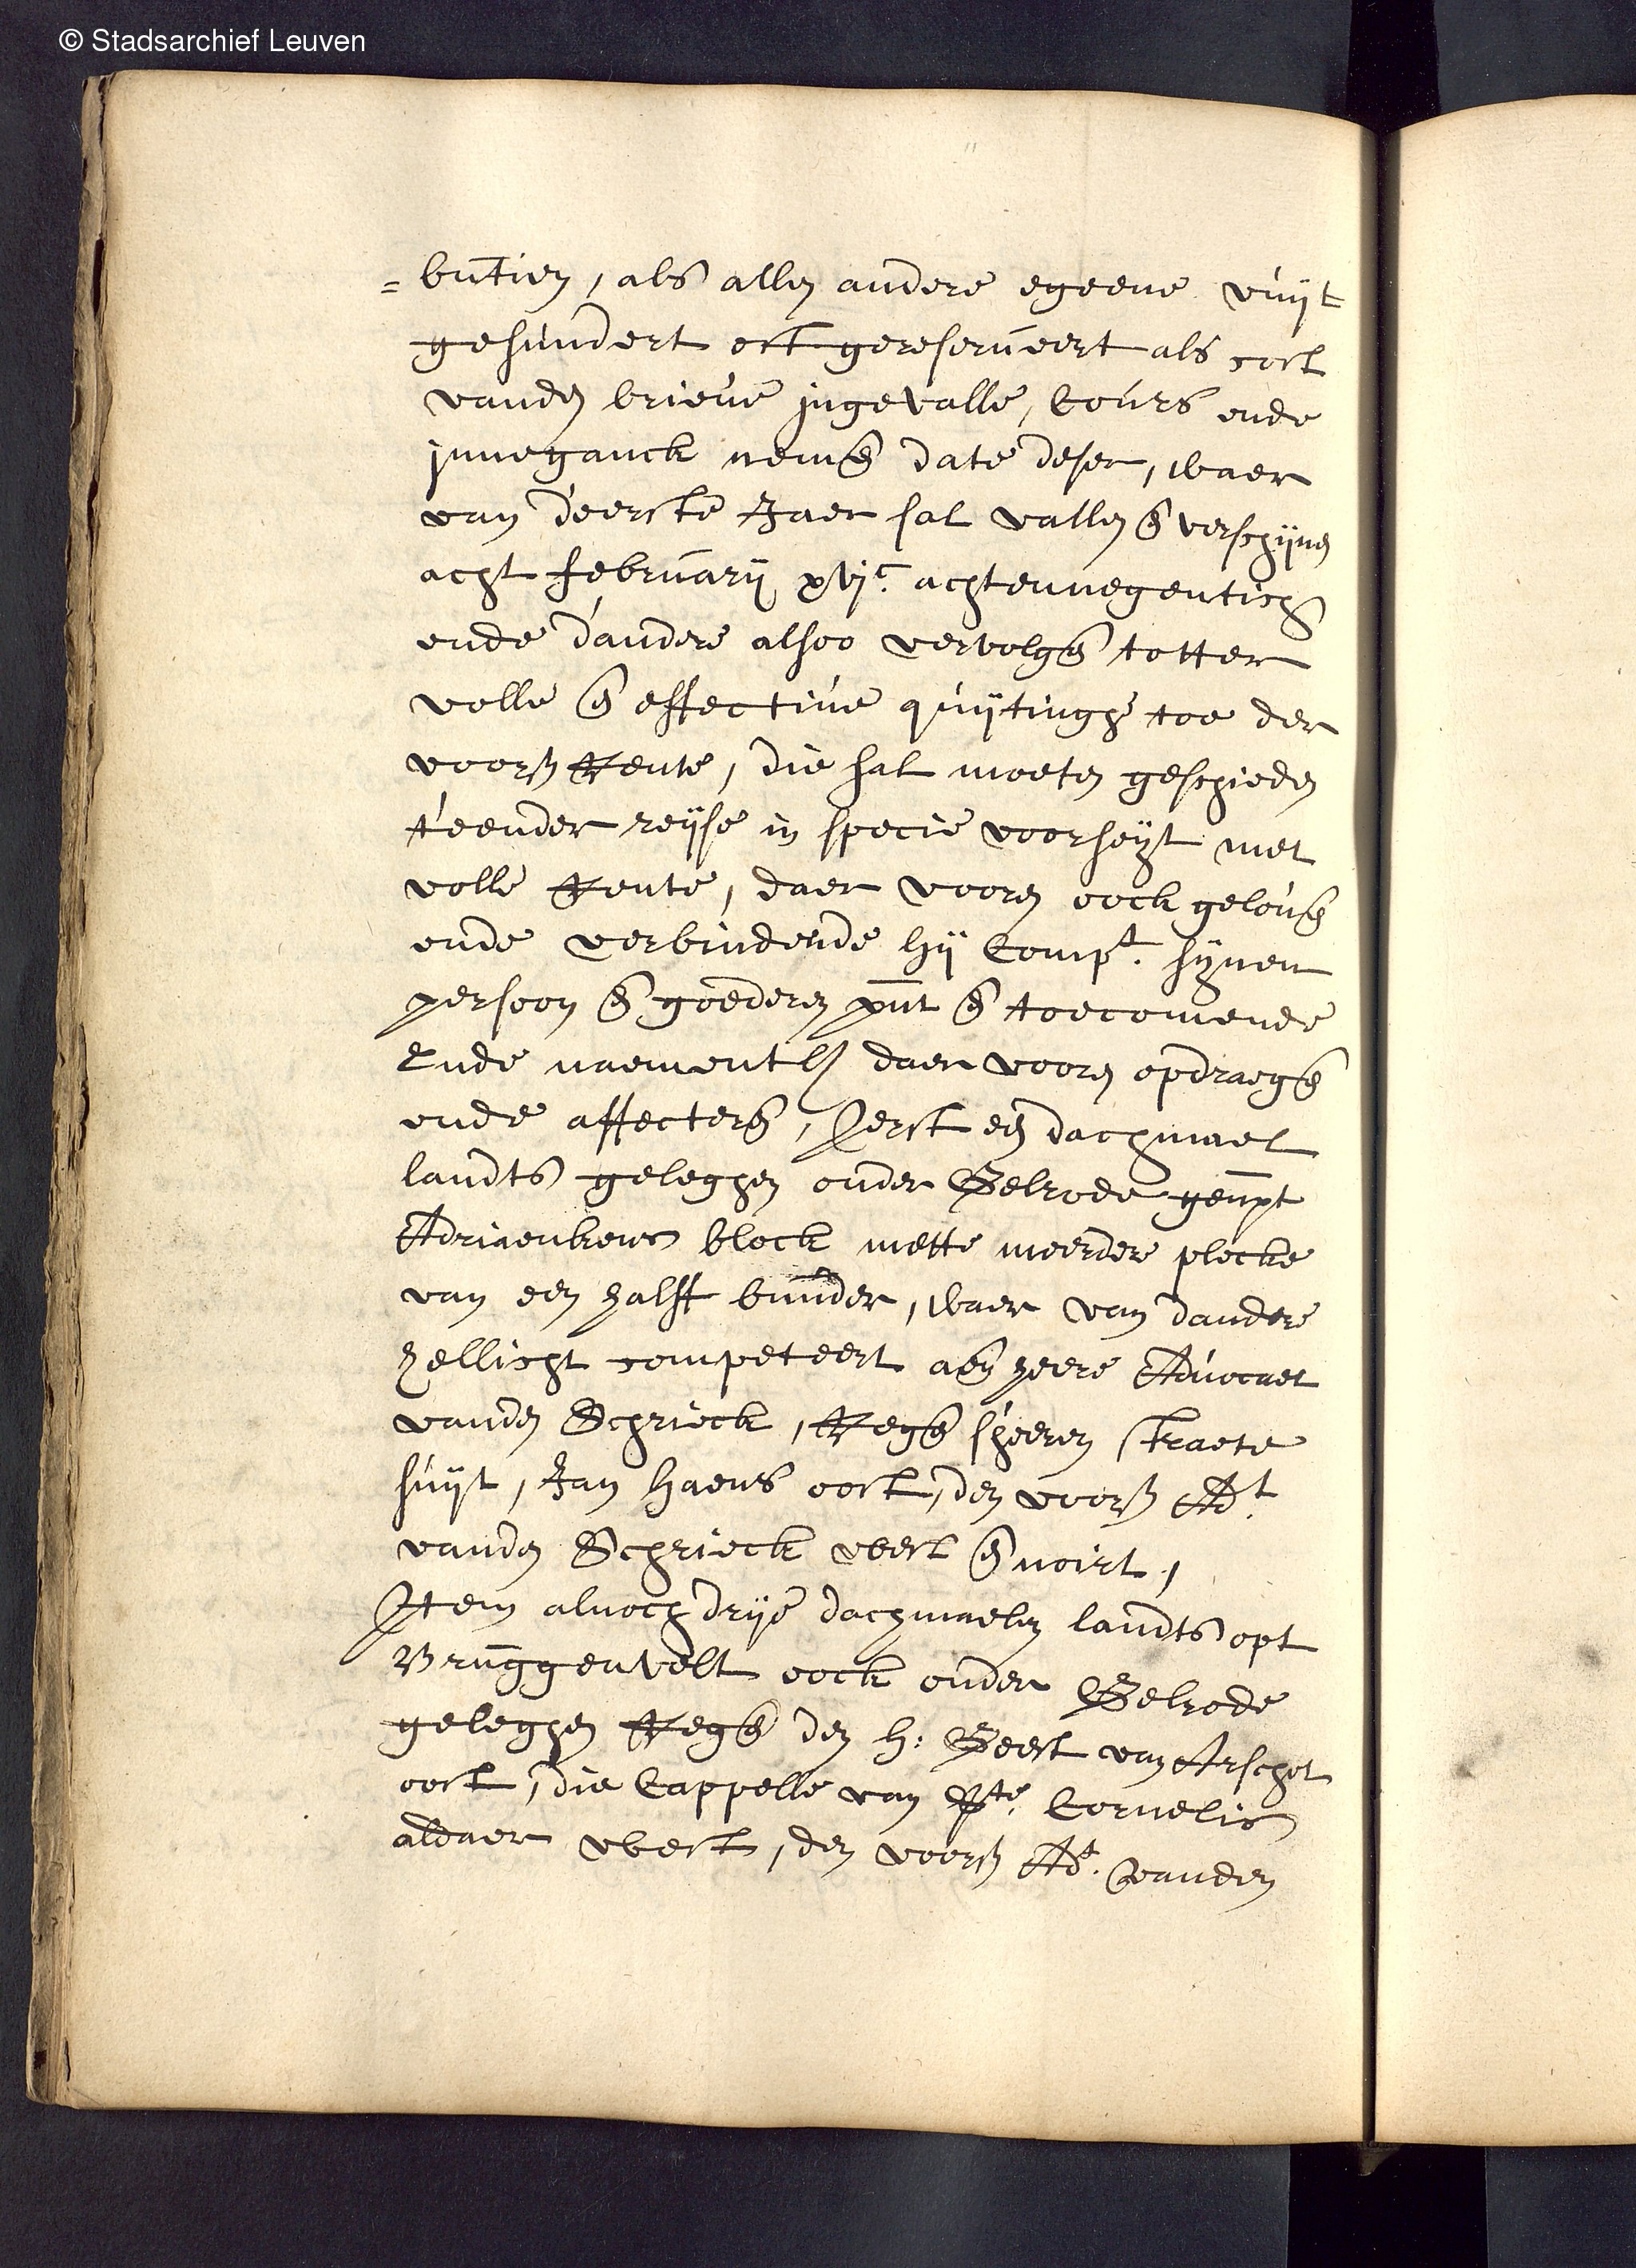 © Stadsarchief Leuven
=butien, als allen andere egeene vuijt
gesundert oft gereserveert als cost
vanden brieve ingevalle, Cours ende
inneganck nemen date deser, waer
van d'eerste Jaer sal vallen en verschijnen
acht februarij xvjc. achtennegentich
ende d'andere alsoo vervolgen totter
volle en effective quijtinghe toe der
voors Rente, die sal moeten geschieden
t'eender reijse in specie voorseyt met
volle Rente, daer vooren oock geloven
ende verbindende hij Compt. sijnen
persoon en goederen pnt en toecomende
Ende naementl daer vooren opdragen
ende affecteren, Ierst een dachmael
landts geleghen onder Betrode genpt
Adriaenkens block mette meerdere plecke
van een halff bunder, waer van dandere
hellicht competeert aen heere Advocaet
vanden Schrieck, Regen s'heeren straete
suijt, Jan Haens oost, den voors Adt.
vanden Schrieck west en noirt,
Item alnoch drije dachmaelen landts opt
Bruggenvelt oock onder Betrode
geleghen Regen den H: Geest van Arschot
oost, die Cappelle van Ste. Cornelis
aldaer west, den voors Adt. vanden